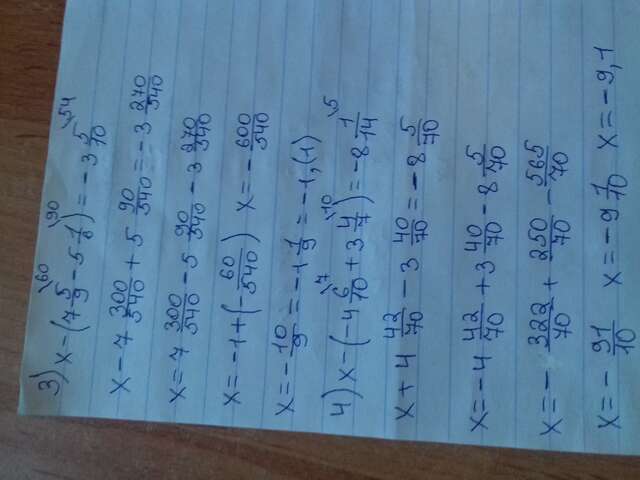 3) x - (7 5/9 \60 - 5 1/6 \90) = -3 5/10 \54
x - 7 300/540 + 5 90/540 = -3 270/540
x = 7 300/540 - 5 90/540 - 3 270/540
x = -1 + (- 60/540) x = - 600/540
x = - 10/9 = -1 1/9 = -1,(1)
4) x - (-4 6/10 \7 + 3 4/7 \10) = -8 1/14 \5
x + 4 42/70 - 3 40/70 = -8 5/70
x = -4 42/70 + 3 40/70 - 8 5/70
x = - 322/70 + 250/70 - 565/70
x = - 91/10 x = -9 1/10 x = -9,1